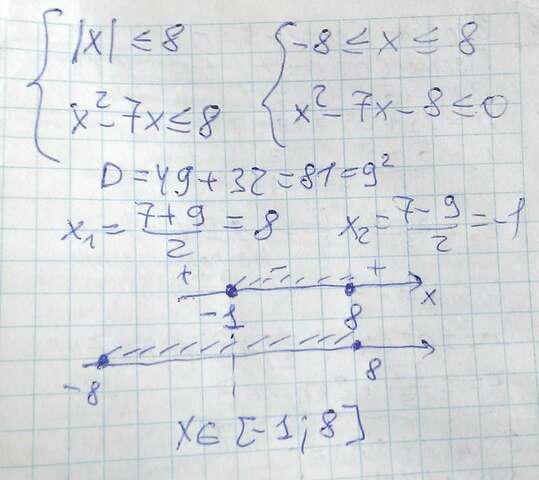 |x| ≤ 8 -8 ≤ x ≤ 8
x² - 7x ≤ 8 x² - 7x - 8 ≤ 0
D = 49 + 32 = 81 = 9²
x₁ = (7+9)/2 = 8 x₂ = (7-9)/2 = -1
+ - +
-1 8 x
-8 8
x ∈ [-1; 8]